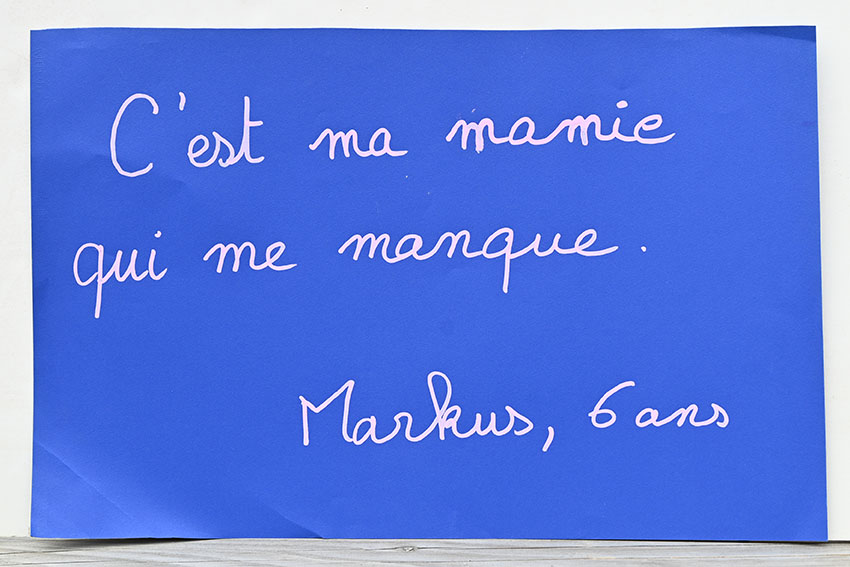 C'est ma mamie
qui me manque.
Markus, 6 ans